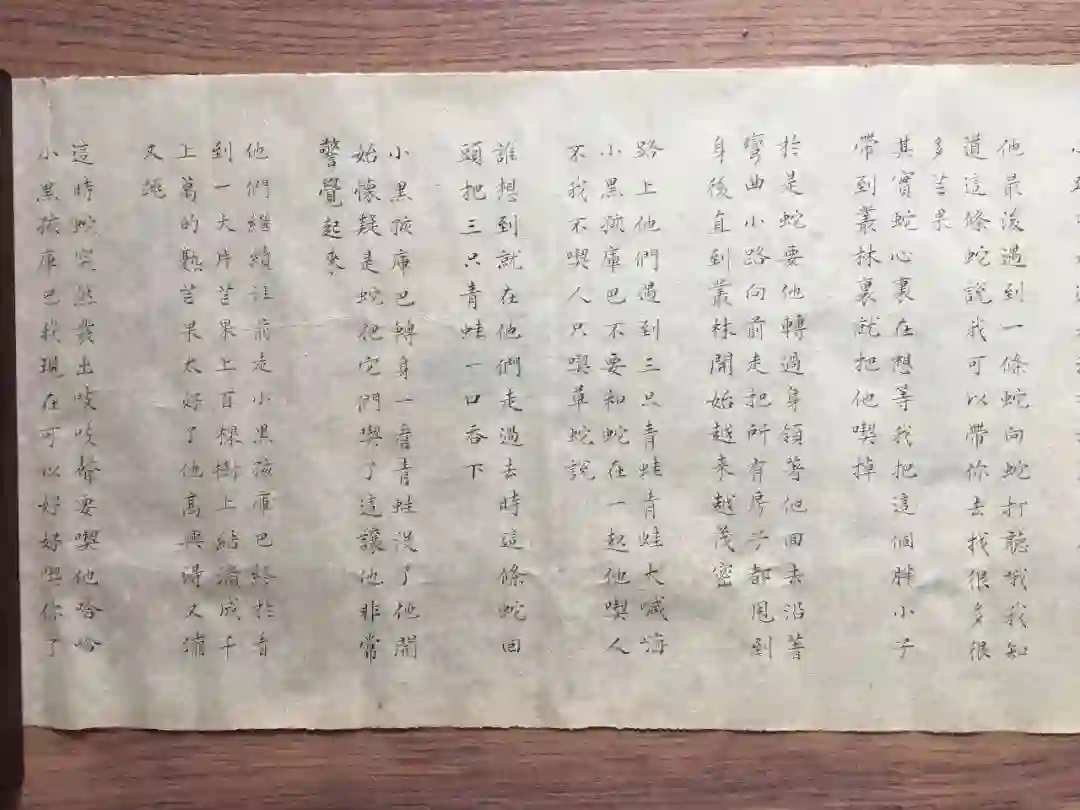 他最後遇到一條蛇向蛇打聽哦我知
道這條蛇說我可以帶你去找很多很
多芒果
其實蛇心裏在想等我把這個胖小子
帶到叢林裏就把他喫掉
於是蛇要他轉過身領著他回去沿著
彎曲小路向前走把所有房子都甩到
身後直到叢林開始越來越茂密
路上他們遇到三只青蛙青蛙大喊嗨
小黑孩庫巴不要和蛇在一起他喫人
不我不喫人只喫草蛇說
誰想到就在他們走過去時這條蛇回
頭把三只青蛙一口吞下
小黑孩庫巴轉身一看青蛙沒了他開
始懷疑是蛇把它們喫了這讓他非常
警覺起來
他們繼續往前走小黑孩庫巴終於看
到一大片芒果上百棵樹上結滿成千
上萬的熟芒果太好了他高興得又蹦
又跳
這時蛇突然發出吱吱聲要喫他哈哈
小黑孩庫巴我現在可以好好喫你了